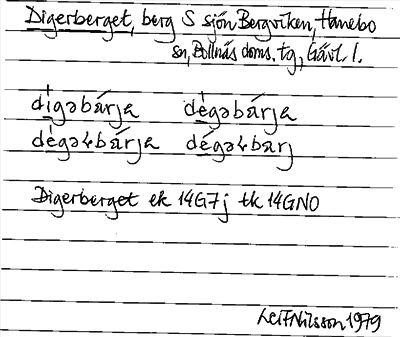 Digerberget, berg S sjön Bergviken, Hanebo
sn, Bollnäs doms. tg, Gävl l.
dìgəbárja dègəbárja
dègəɿbárja dégəɿbarj
Digerberget ek 14G7j tk 14GNO
Leif Nilsson 1979